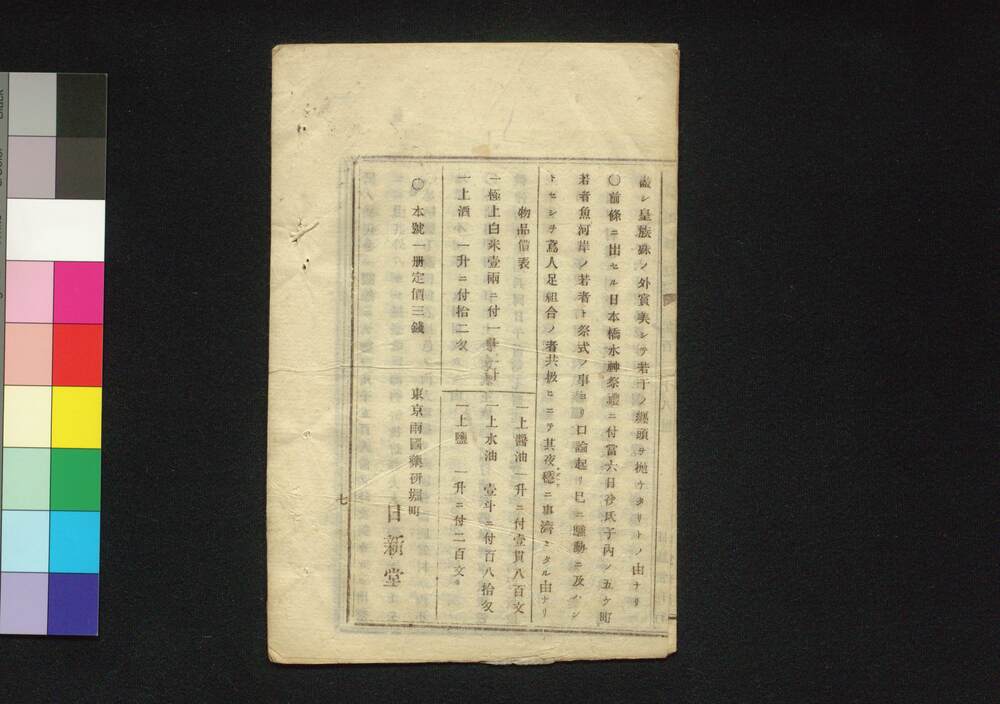 敬シ皇族殊ノ外賞美シテ若干ノ纏頭ヲ抛ウタリトノ由ナリ
〇前條ニ出セル日本橋水神祭禮ニ付當六日谷氏子内ノ五ケ町
若者魚河岸ノ若者ト祭式ノ事ヨリ口論起リ巳ニ騷動ニ及ハン
トセシヲ鳶人足組合ノ者共扱ヒニテ其夜穩ニ事濟ミタル由ナリ
物品價表
一極上白米壹兩ニ付一斗一升
一上酒一升ニ付拾二匁
一上醬油一升ニ付壹貫八百文
一上水油 壹斗ニ付百八拾匁
一上鹽 一升ニ付二百文
〇 本號一册定價三錢
東京兩國藥研堀町
日新堂
七